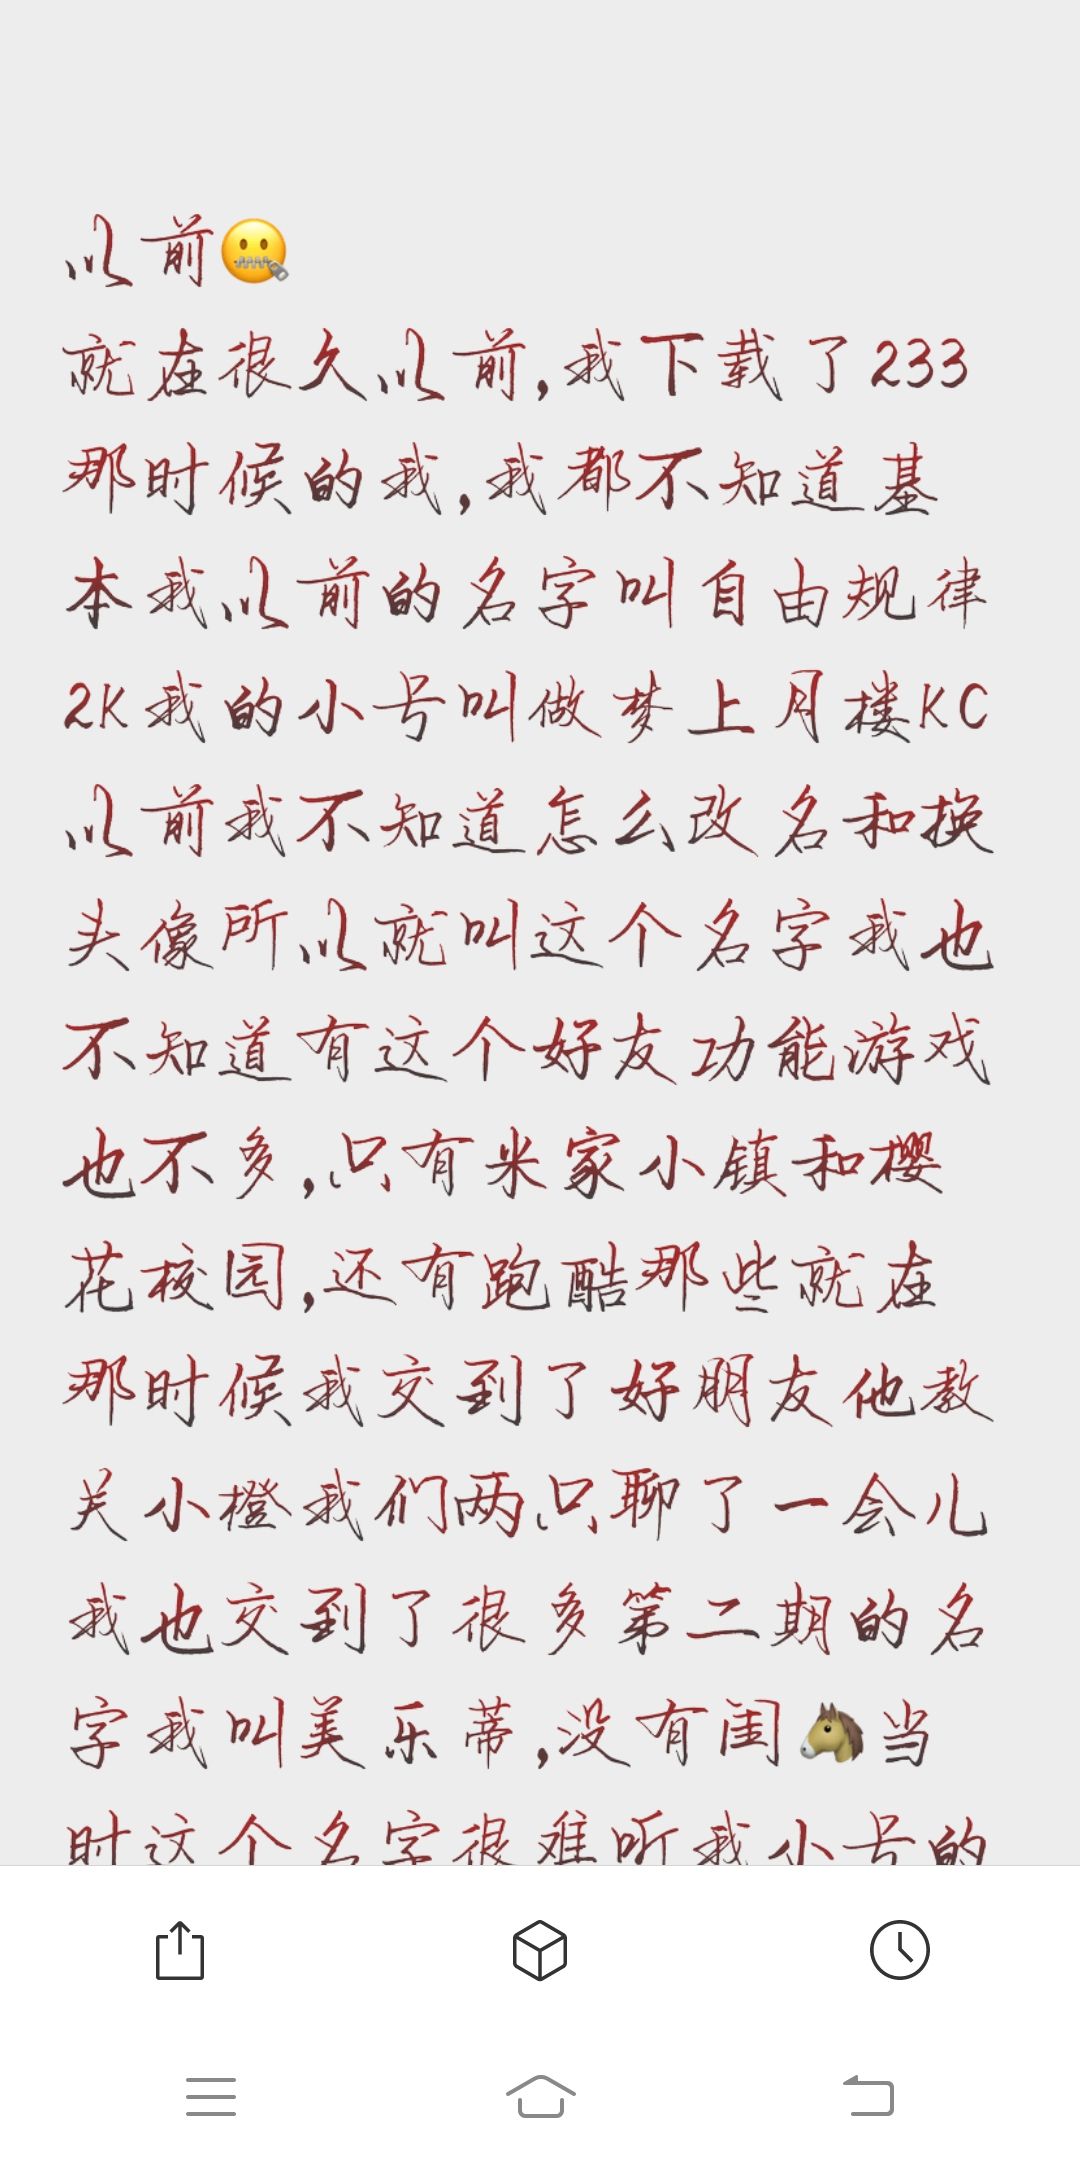 以前🤐
就在很久以前,我下载了233
那时候的我,我都不知道基
本我以前的名字叫自由规律
2K我的小号叫做梦上月楼KC
以前我不知道怎么改名和换
头像所以就叫这个名字我也
不知道有这个好友功能游戏
也不多,只有米家小镇和樱
花校园,还有跑酷那些就在
那时候我交到了好朋友他教
关小橙我们两只聊了一会儿
我也交到了很多第二期的名
字我叫美乐蒂,没有闺🐴当
时这个名字很难听我小号的